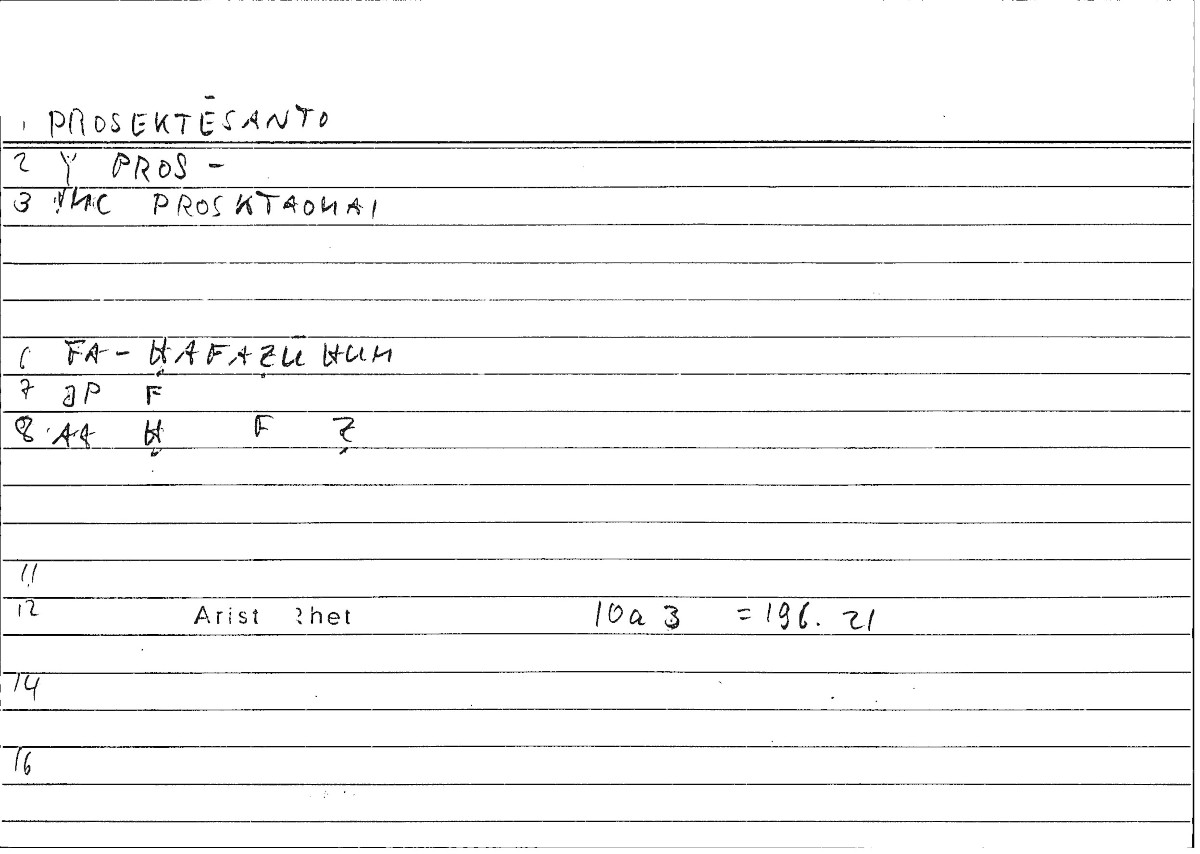 1 PROSEKTĒSANTO
2 Y PROS -
3 PROSKTAOMAI
6 FA - ḤAFAẒŪ HUM
7 JP F
8 AA Ḥ F Ẓ
11
12 Arist Rhet 10a 3 = 196. 21
14
16